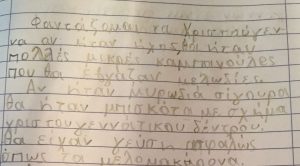 Φαντάζομαι τα Χριστούγεν
να αν ήταν ήχος, θα ήταν
πολλές μικρές καμπανούλες
που θα έβγαζαν μελωδίες.
Αν ήταν μυρωδιά σίγουρα
θα ήταν μπισκότα με σχήμα
χριστουγεννιάτικου δέντρου.
θα είχαν γεύση
όπως τα μελομακάρονα.